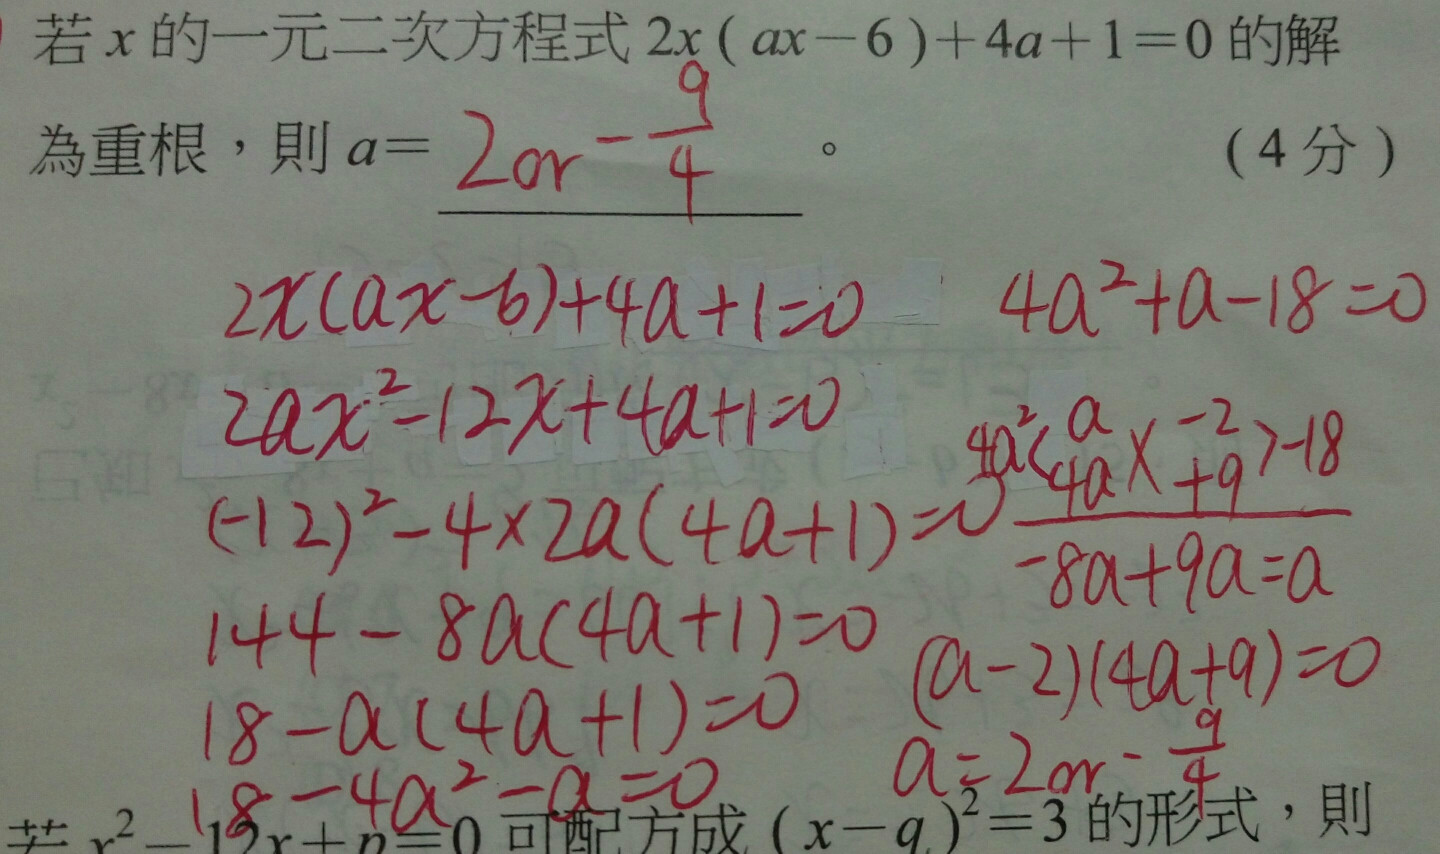 若 x 的一元二次方程式 2x ( ax－6 )＋4a＋1＝0 的解
為重根，則 a＝ 2 or -9/4 。 ( 4 分 )
2x(ax-6)+4a+1=0
2ax²-12x+4a+1=0
(-12)²-4×2a(4a+1)=0
144-8a(4a+1)=0
18-a(4a+1)=0
18-4a²-a=0
4a²+a-18=0
4a²< a × -2 >-18
4a +9
-8a+9a=a
(a-2)(4a+9)=0
a=2 or -9/4
若 x²－12x＋p＝0 可配方成 ( x－q )²＝3 的形式，則